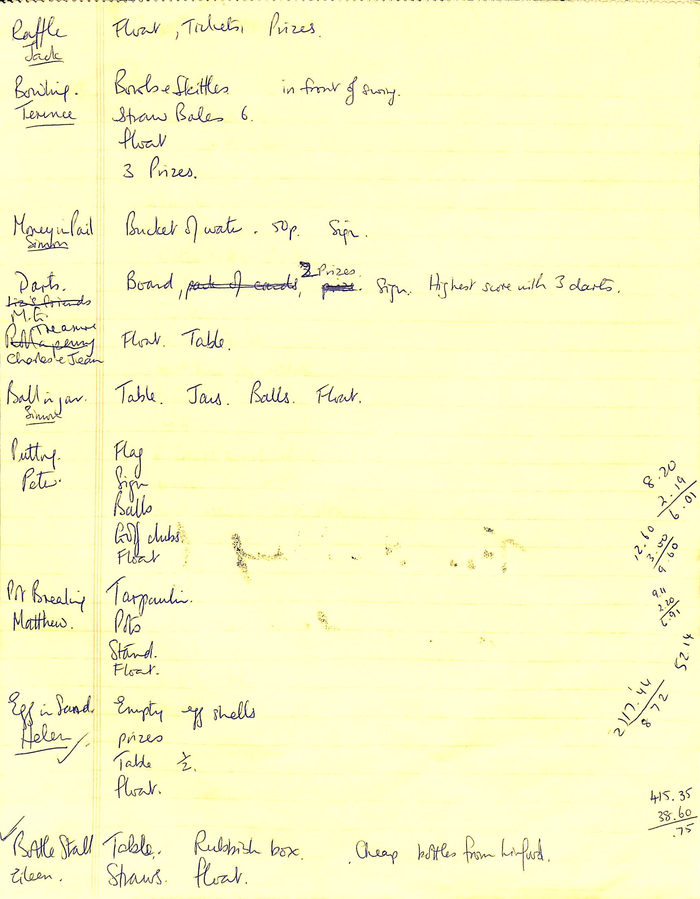 Raffle Float, Tickets, Prizes.
Jack
Bowling. Bowls & Skittles in front of swing.
Terence Straw Bales 6.
float
3 Prizes.
Money in Pail Bucket of water. 50p. Sign.
Simon
Darts. Board, pack of cards, 3 Prizes. Sign. Highest score with 3 darts.
Liz's friends
M.G.
Treasure
Roll a penny Float. Table.
Charles & Jean
Ball in jar. Table. Jars. Balls. Float.
Simon
Putting. Flag
Peter. Sign
Balls
Golf clubs
Float
Pot Breaking Tarpaulin.
Matthew. Pots
Stand.
Float.
Egg in Sand. Empty egg shells
Helen prizes
Table ½.
float.
Bottle Stall Table. Rubbish box. Cheap bottles from
Eileen. Straws. float.
8.20
2.19
6.01
12.60
3.00
9 60
9.11
2.20
6.91
52.14
2)17.44
8 72
415.35
38.60
.75